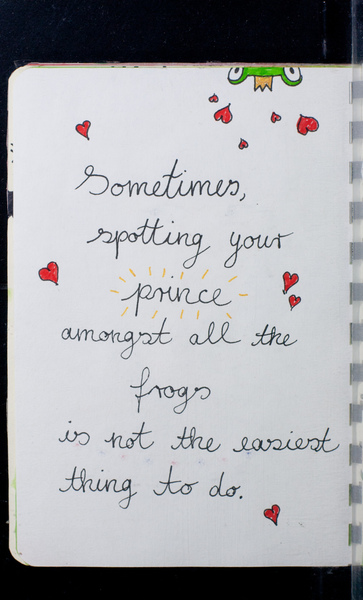 Sometimes,
spotting your
prince
amongst all the
frogs
is not the easiest
thing to do.